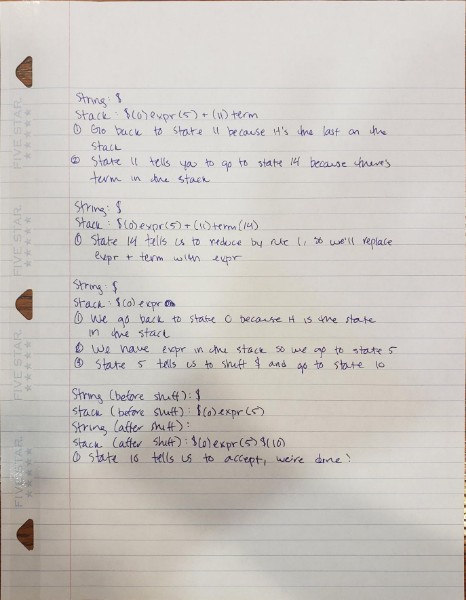 String: $
Stack: $(0)expr(5)+(11)term
① Go back to state 11 because it's the last on the
stack
② State 11 tells you to go to state 14 because there's
term in the stack
String: $
Stack: $(0)expr(5)+(11)term(14)
① State 14 tells us to reduce by rule 1, so we'll replace
expr + term with expr
String: $
Stack: $(0)expr
① We go back to state 0 because it is the state
in the stack
② We have expr in the stack so we go to state 5
③ State 5 tells us to shift $ and go to state 10
String (before shift): $
Stack (before shift): $(0)expr(5)
String (after shift):
Stack (after shift): $(0)expr(5)$(10)
① State 10 tells us to accept, we're done!
FIVE STAR
FIVE STAR
FIVE STAR
FIVE STAR